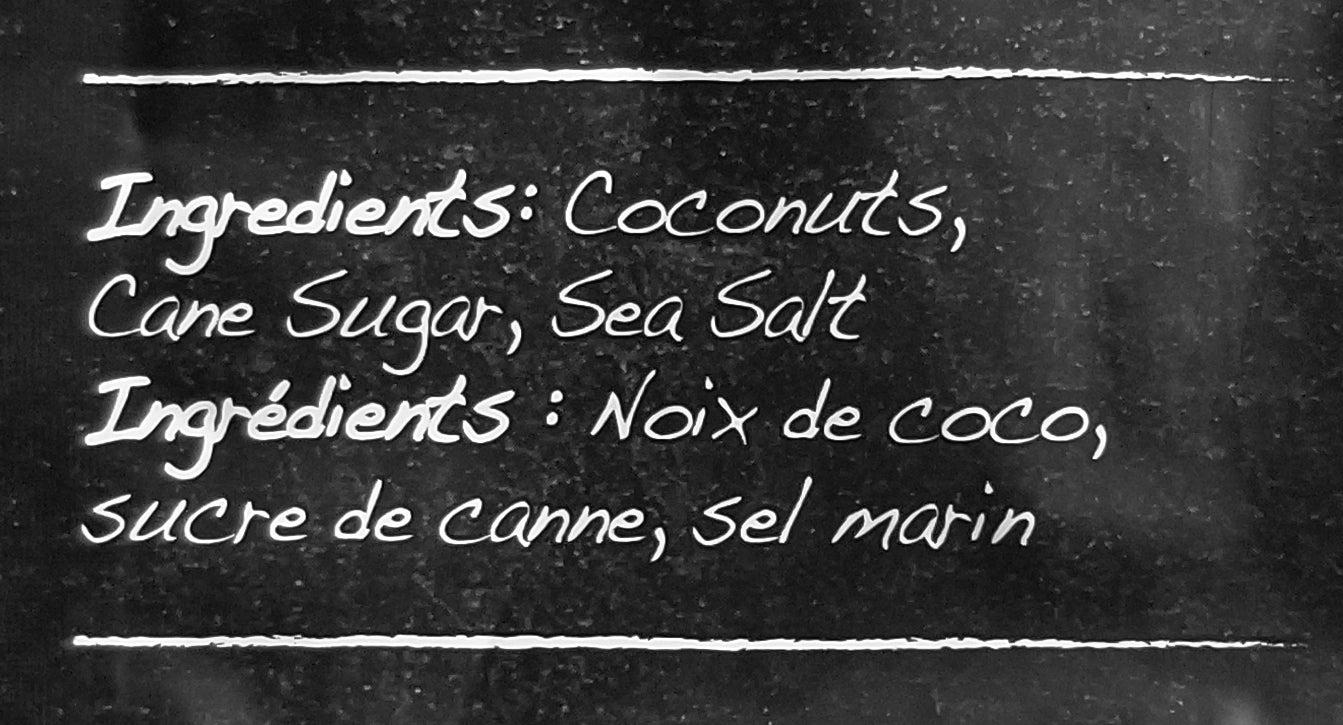 Ingredients: Coconuts,
Cane Sugar, Sea Salt
Ingrédients : Noix de coco,
sucre de canne, sel marin